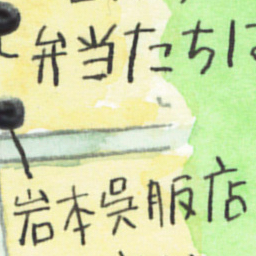 弁当たちに
岩本呉服店